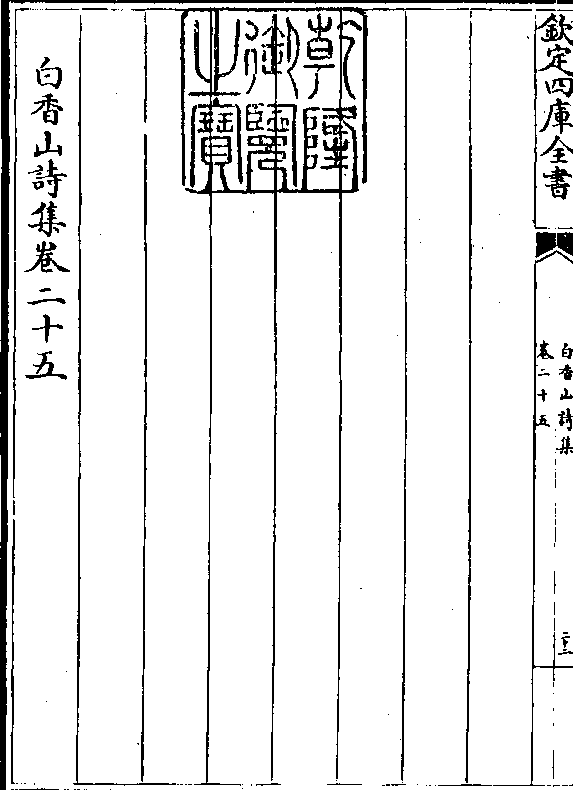 欽定四庫全書
白香山詩集
卷二十五
乾隆
御覽
之寶
白香山詩集卷二十五